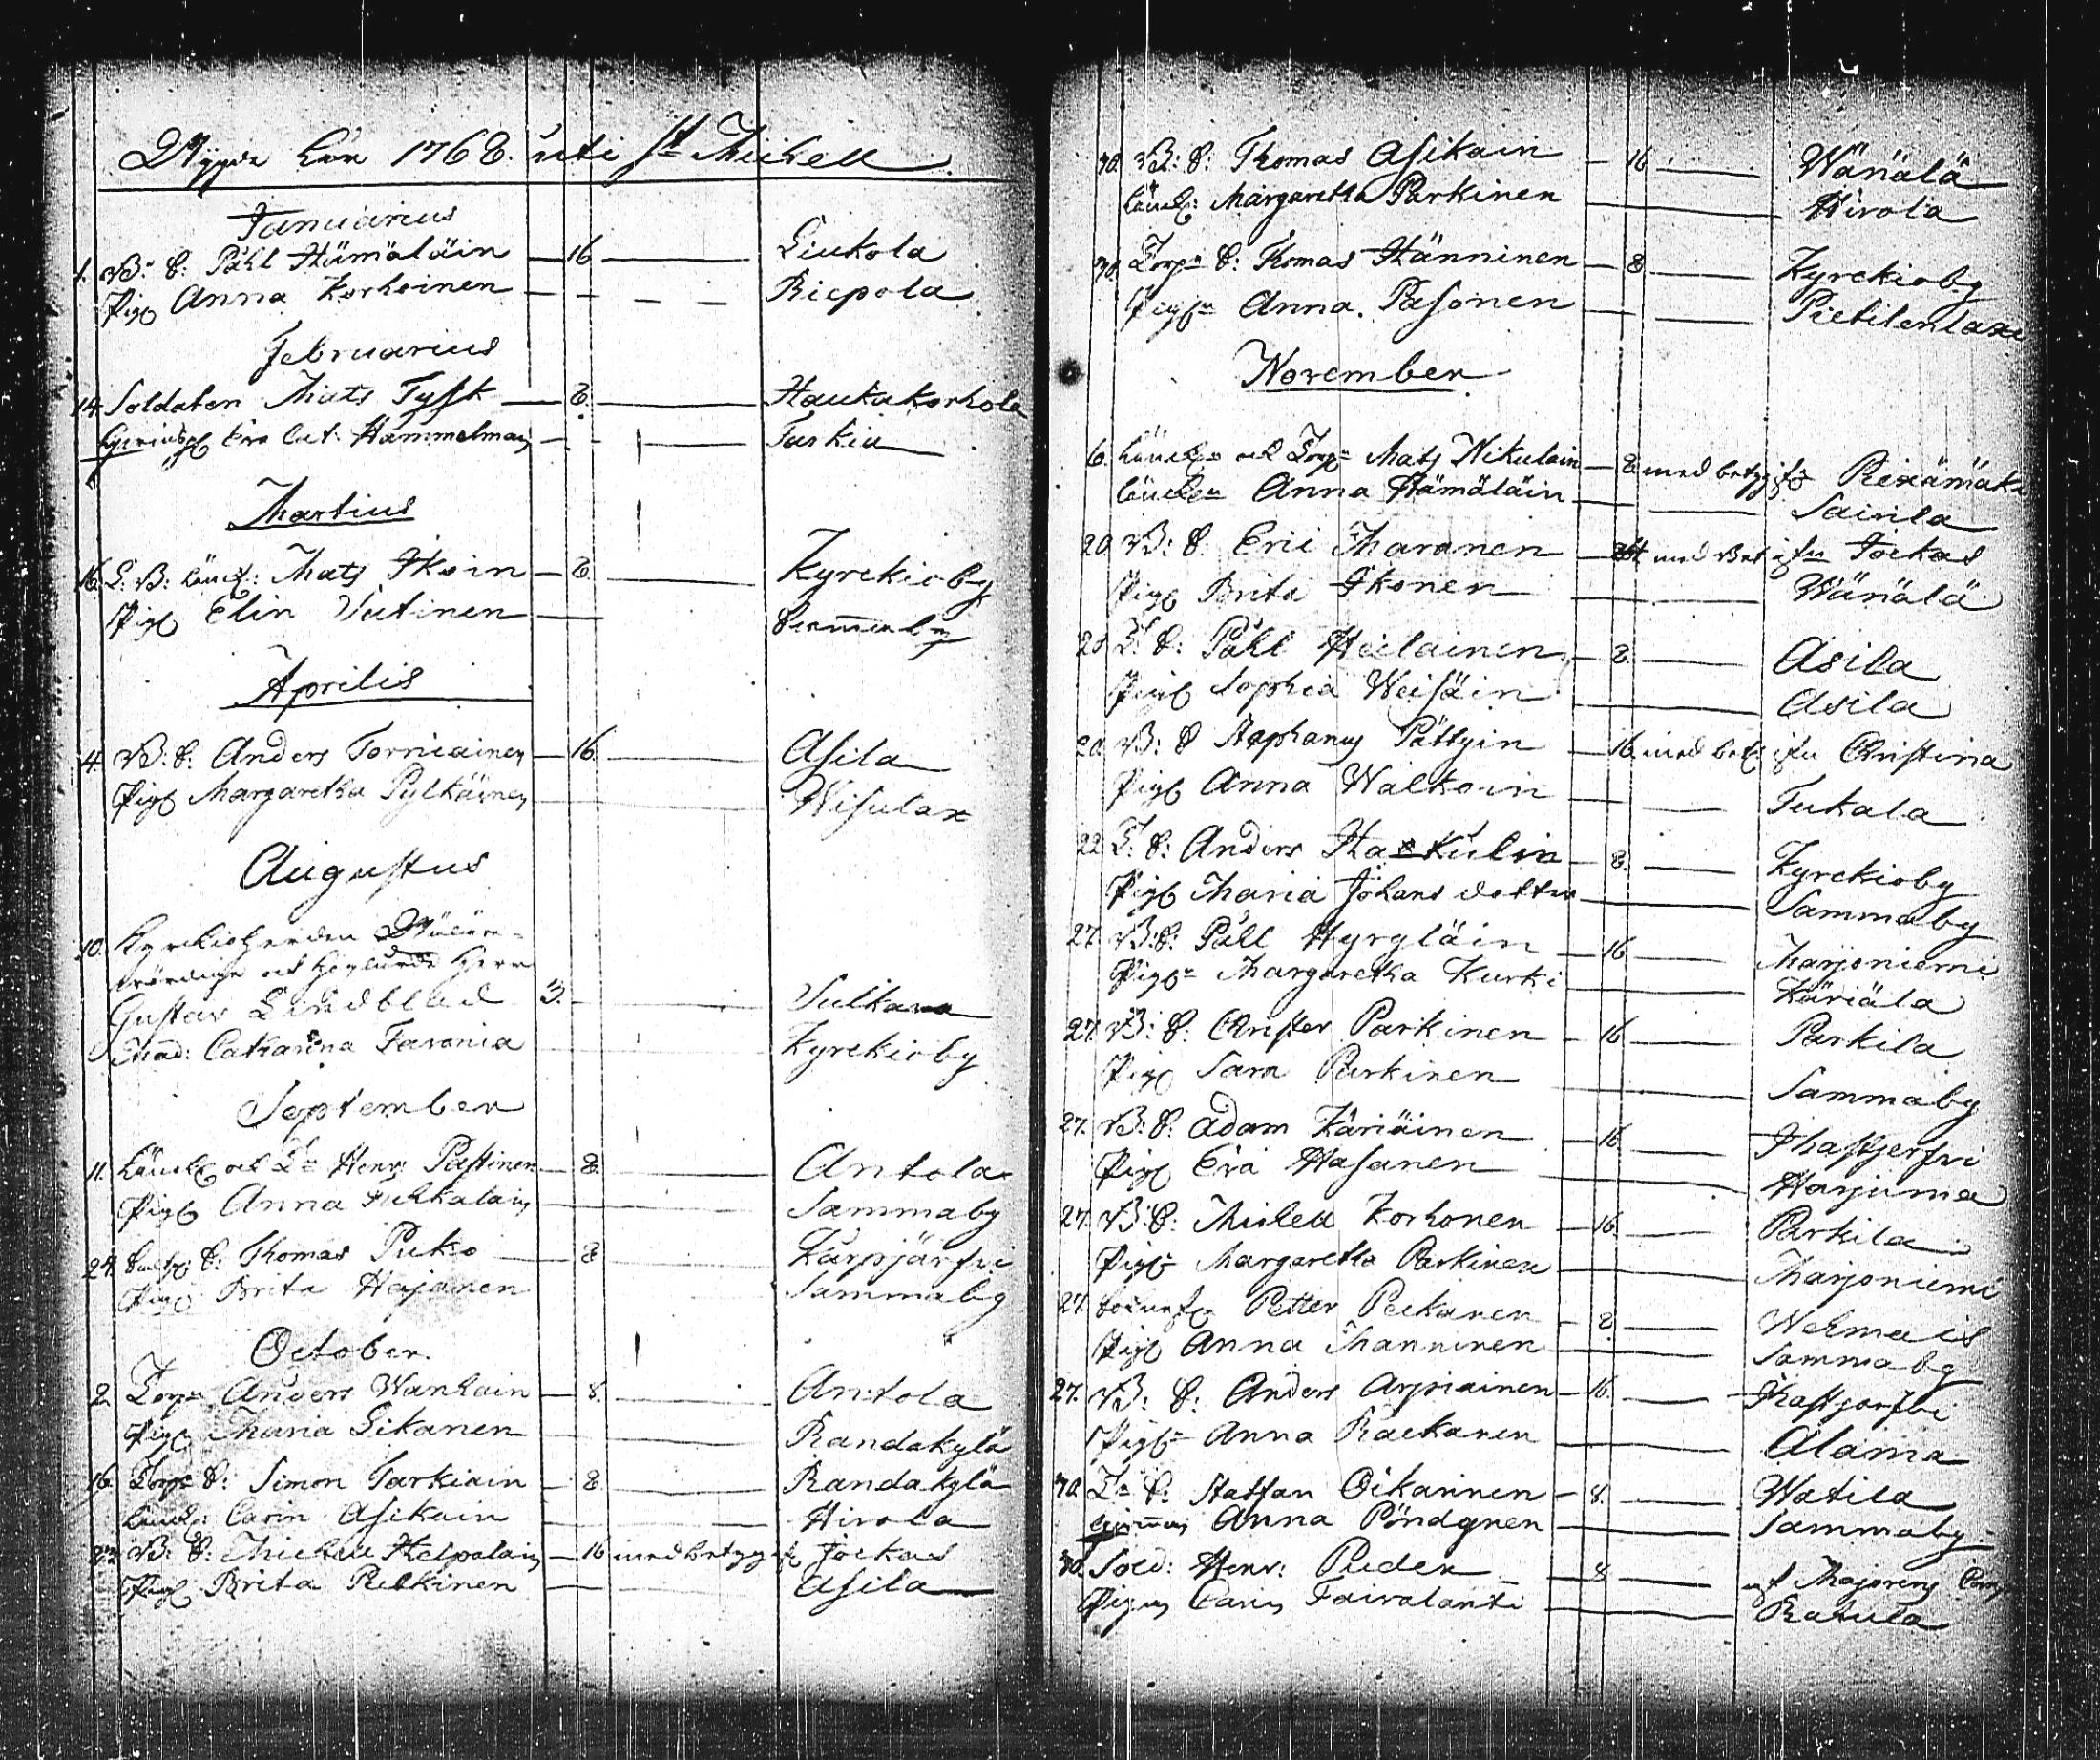 åhr 1768. uti St Michell
Januarius
1. B: S: Påhl Hämäläin — 16 — Liukola
Pig. Anna Korhoinen — Riepola
Februarius
14. Soldaten Mats Tysk — 8. — Haukakorhola
Eva Cat: Hammelman — Tuskia
Martius
16. L. B: Mats Ikoin — 8. — Kyrckioby
Pig. Elin Vutinen
Aprilis
4. B: S: Anders Torniainen — 16. — Asila
Pig. Margaretha Pylkäinen — Wisulax
Augustus
10. Kyrckioherden
och Herr
Gustav Lindblad 3. — Sulkava
Mad: Catharina Favonia — Kyrckioby
September
11. och Henr: Pastinen — 8. — Antola
Pig. Anna — Sammaby
24. S: Thomas Pukio — 8 — Karpjärfvi
Pig. Brita Hajanen — Sammaby
October.
2. Torp. Anders Wanhain — 8. — Antola
Pig. Maria Likanen — Randakylä
16. Torp. S: Simon Tarkiain — 8. — Randakylä
Carin Asikain — Hirola
23. B: S: Michell — 16 med Jockas
Pig. Brita Pulkinen — Asila
30. B: S: Thomas Asikain — 16 — Wänälä
Margaretha Parkinen — Hirola
30. Torp. S: Thomas Hänninen — 8 — Kyrckioby
Pig. Anna Pasonen — Pietilenlax
November
6. och Torp. Mats Nikulain — 8 med Rixämäki
Anna Hämäläin — Sairila
20. B: S: Eric Maranen — med Jockas
Pig. Brita Ikonen — Wänälä
20. T. S: Påhl Heilainen — 8. — Asila
Pig. Sophia Weisäin — Asila
20. B: S Stephanus Pättyin — 16. med Christina
Pig. Anna Walkoin — Tukala
22. T: S: Anders — 8. — Kyrckioby
Pig. Maria Johans dotter — Sammaby
27. B: S: Påll Hyrgläin — 16. — Marjoniemi
Pig. Margaretha Kurki — Käriäla
27. B: S: Christer Parkinen — 16 — Parkila
Pig. Sara Parkinen — Sammaby
27. B: S: Adam Käriäinen — 16
Pig. Eva Hasanen — Harjuma
27. B: S: Michell Korhonen — 16. — Parkila
Pig. Margaretha Parkinen — Marjoniemi
27. Petter Peckanen — 8. — Wehmais
Pig. Anna Manninen — Sammaby
27. B: S: Anders Arpiainen — 16.
Pig. Anna Rackanen — Alama
30. S: Staffan Oikarinen — 8. — Watila
Anna Pöndynen — Sammaby
30. Sold: Henr: Ruder — 8 — af Majorens Comp
Pigan Carin — Ratula